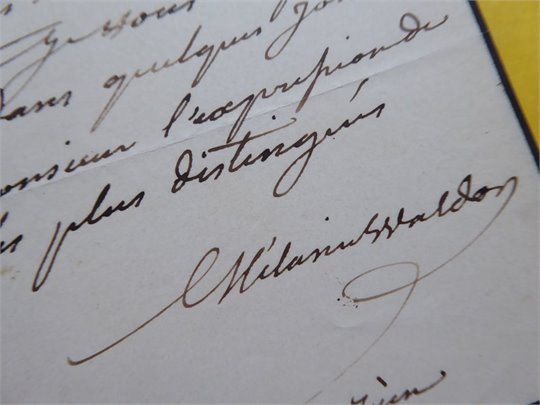 Je vous
Dans quelques jou
onsieur l'expression de
s plus distingués
Mélanie Waldor